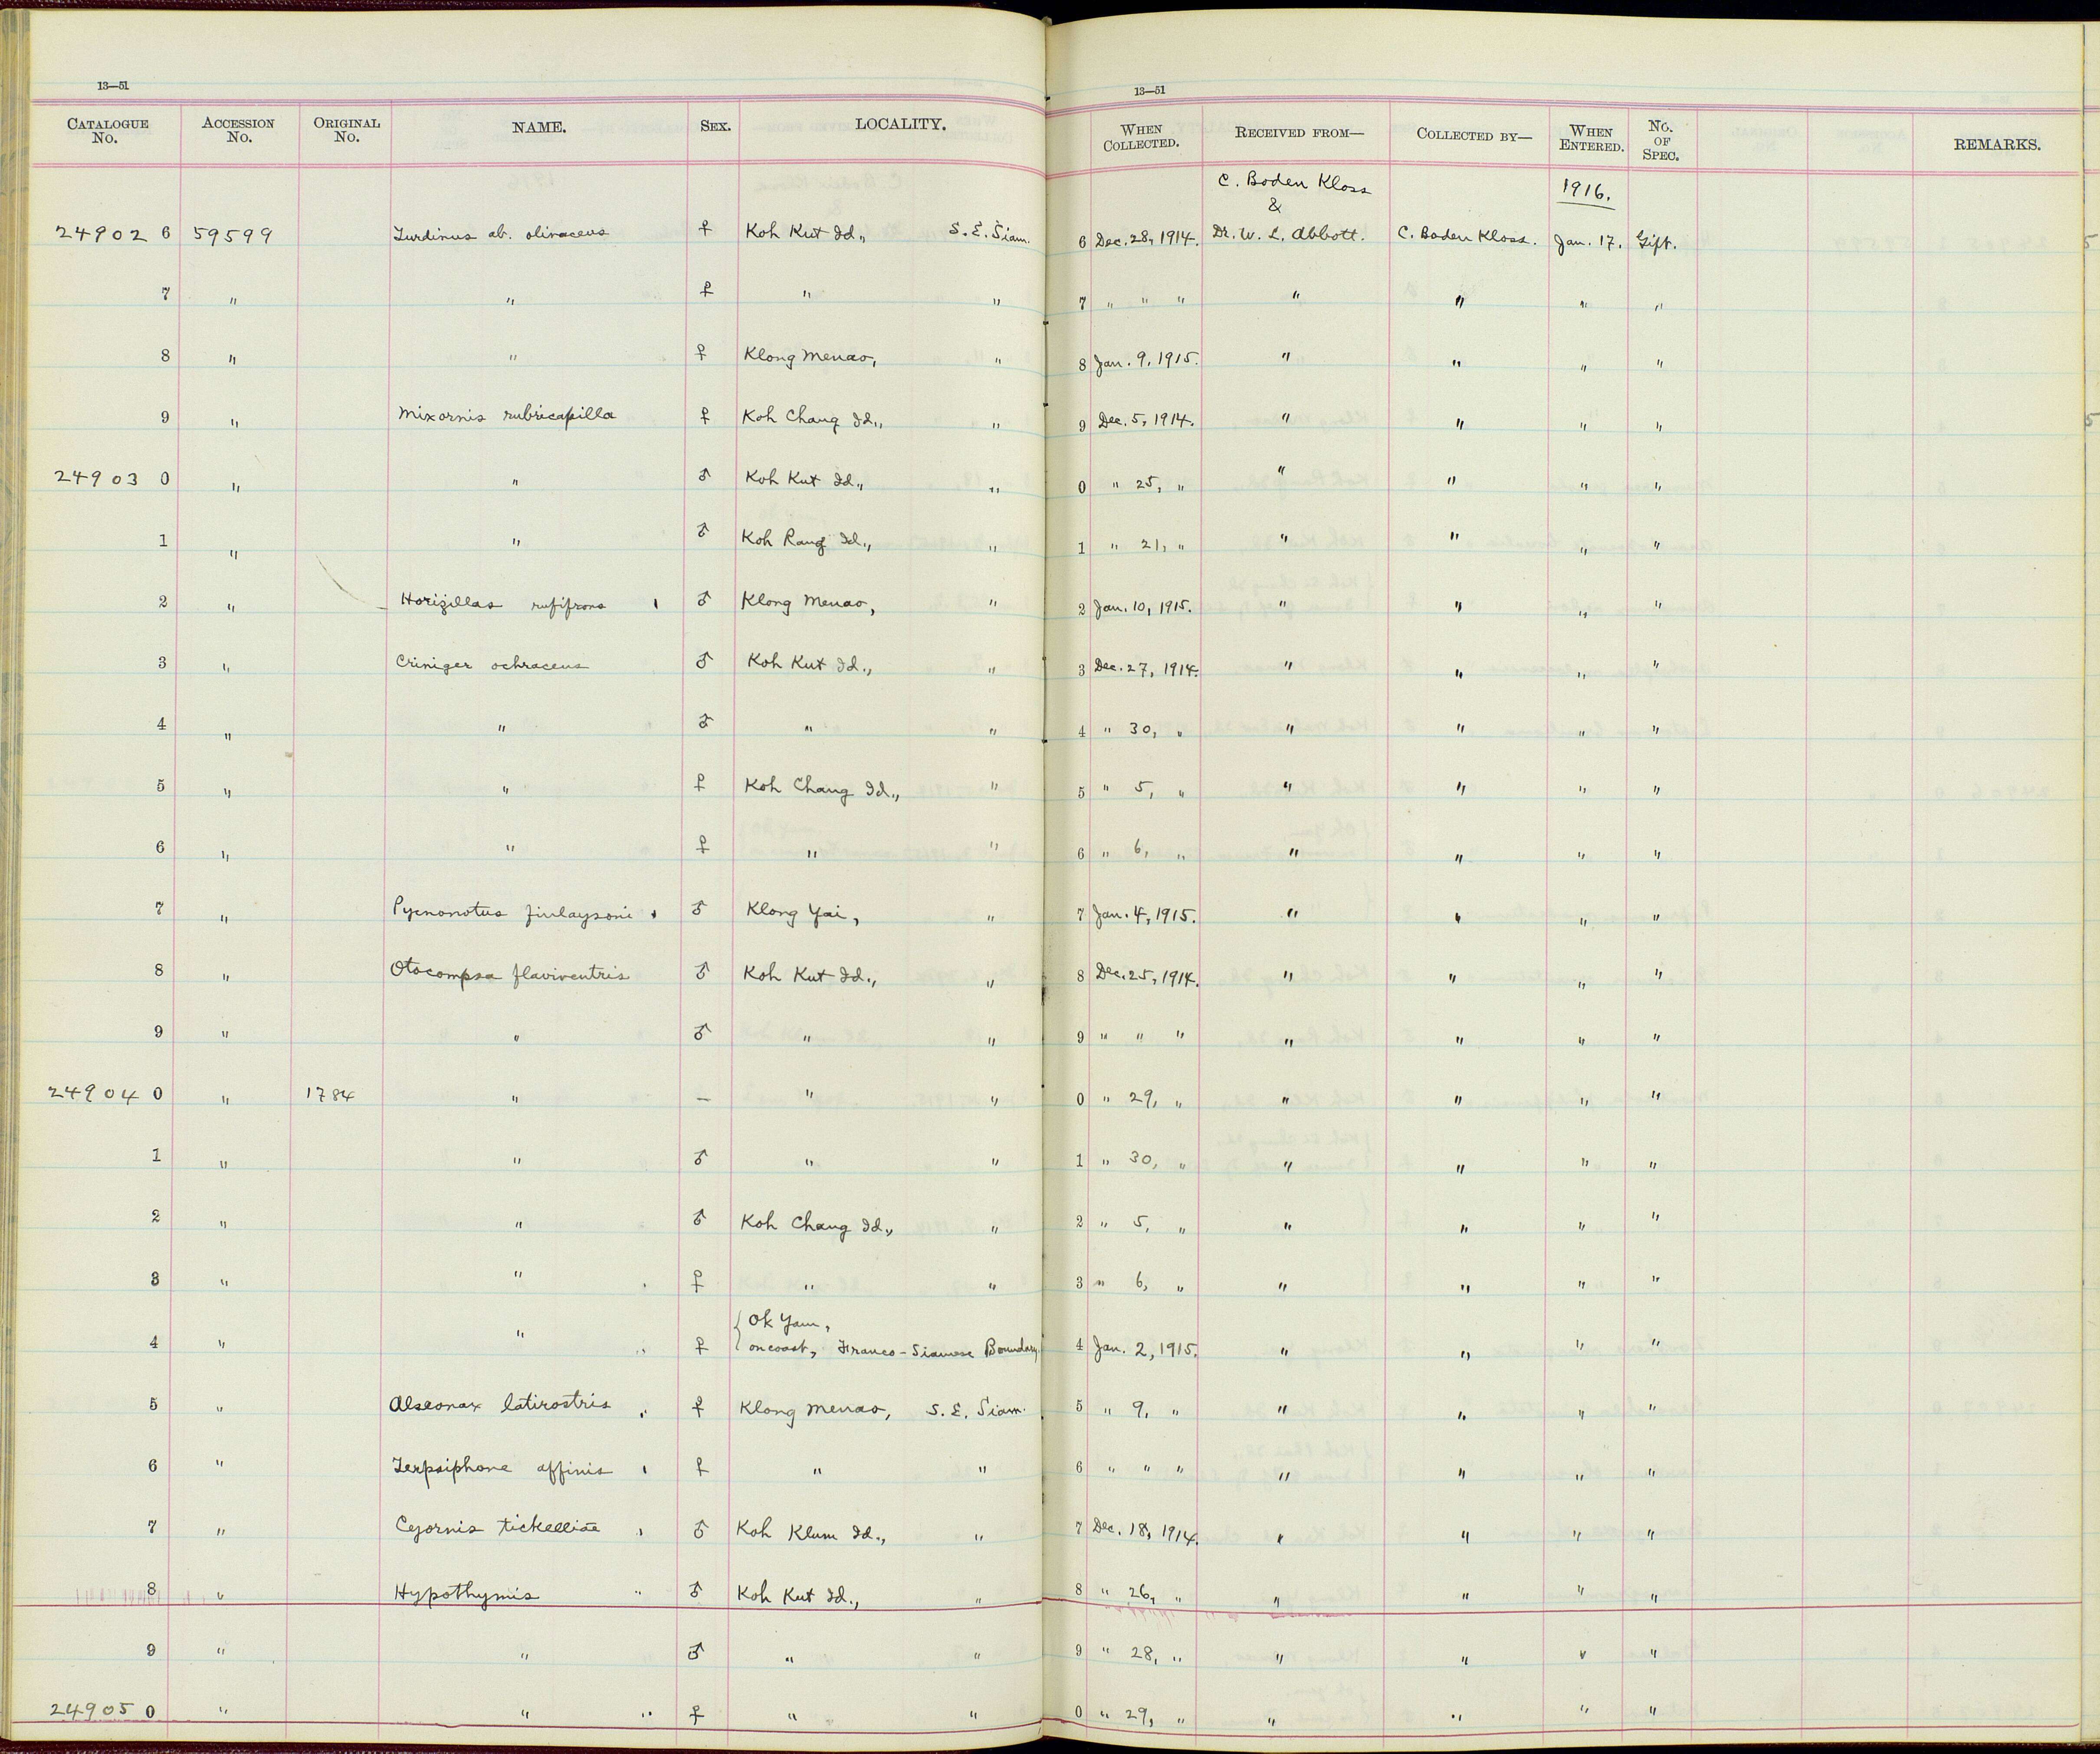 13—51
CATALOGUE No. ACCESSION No. ORIGINAL No. NAME. SEX. LOCALITY.
24902 6 59599 Turdinus ab. olivaceus ♀ Koh Kut Id., S. E. Siam.
7 " " ♀ " "
8 " " ♀ Klong Menao, "
9 " Mixornis rubricapilla ♀ Koh Chang Id., "
24903 0 " " ♂ Koh Kut Id., "
1 " " ♂ Koh Rang Id., "
2 " Horizillas rufifrons ♂ Klong Menao, "
3 " Criniger ochraceus ♂ Koh Kut Id., "
4 " " ♂ " "
5 " " ♀ Koh Chang Id., "
6 " " ♀ " "
7 " Pycnonotus finlaysoni ♂ Klong Yai, "
8 " Otocompsa flaviventris ♂ Koh Kut Id., "
9 " " ♂ " "
24904 0 " 1784 " — " "
1 " " ♂ " "
2 " " ♂ Koh Chang Id., "
3 " " ♀ " "
4 " " ♀ { Ok Yam,
on coast, Franco-Siamese Boundary.
5 " Alseonax latirostris ♀ Klong Menao, S. E. Siam.
6 " Terpsiphone affinis ♀ " "
7 " Cyornis tickelliae ♂ Koh Klum Id., "
8 " Hypothymis ♂ Koh Kut Id., "
9 " " ♂ " "
24905 0 " " ♀ " "
13—51
WHEN COLLECTED. RECEIVED FROM— COLLECTED BY— WHEN ENTERED. No. OF SPEC. REMARKS.
C. Boden Kloss 1916.
&
6 Dec. 28, 1914. Dr. W. L. Abbott. C. Boden Kloss. Jan. 17. Gift.
7 " " " " " " "
8 Jan. 9, 1915. " " " "
9 Dec. 5, 1914. " " " "
0 " 25, " " " " "
1 " 21, " " " " "
2 Jan. 10, 1915. " " " "
3 Dec. 27, 1914. " " " "
4 " 30, " " " " "
5 " 5, " " " " "
6 " 6, " " " " "
7 Jan. 4, 1915. " " " "
8 Dec. 25, 1914. " " " "
9 " " " " " " "
0 " 29, " " " " "
1 " 30, " " " " "
2 " 5, " " " " "
3 " 6, " " " " "
4 Jan. 2, 1915. " " " "
5 " 9, " " " " "
6 " " " " " " "
7 Dec. 18, 1914. " " " "
8 " 26, " " " " "
9 " 28, " " " " "
0 " 29, " " " " "